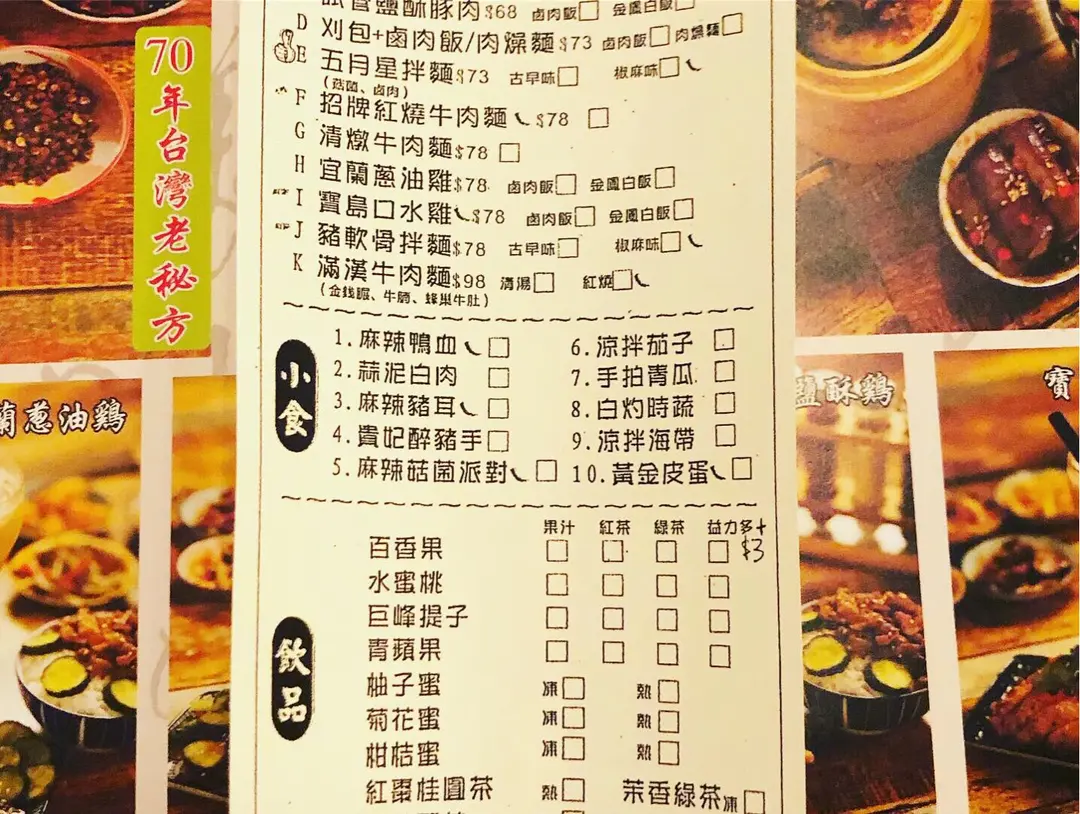 70年台灣老秘方
鹽酥豚肉$68 鹵肉飯□ 金鳳白飯□
D 刈包+鹵肉飯/肉燥麵$73 鹵肉飯□ 肉燥麵□
E 五月星拌麵$73 古早味□ 椒麻味□
(菇菌、鹵肉)
F 招牌紅燒牛肉麵 $78 □
G 清燉牛肉麵$78 □
H 宜蘭蔥油雞$78 鹵肉飯□ 金鳳白飯□
I 寶島口水雞 $78 鹵肉飯□ 金鳳白飯□
J 豬軟骨拌麵$78 古早味□ 椒麻味□
K 滿漢牛肉麵$98 清湯□ 紅燒□
(金錢𦟌、牛腩、蜂巢牛肚)
小食
1.麻辣鴨血 □ 6.涼拌茄子 □
2.蒜泥白肉 □ 7.手拍青瓜 □
3.麻辣豬耳 □ 8.白灼時蔬 □
4.貴妃醉豬手□ 9.涼拌海帶 □
5.麻辣菇菌派對 □ 10.黃金皮蛋 □
飲品
果汁 紅茶 綠茶 益力多+$3
百香果 □ □ □ □
水蜜桃 □ □ □ □
巨峰提子 □ □ □ □
青蘋果 □ □ □ □
柚子蜜 凍□ 熱□
菊花蜜 凍□ 熱□
柑桔蜜 凍□ 熱□
紅棗桂圓茶 熱□ 茉香綠茶凍□
蘭蔥油鷄
鹽酥鷄
寶